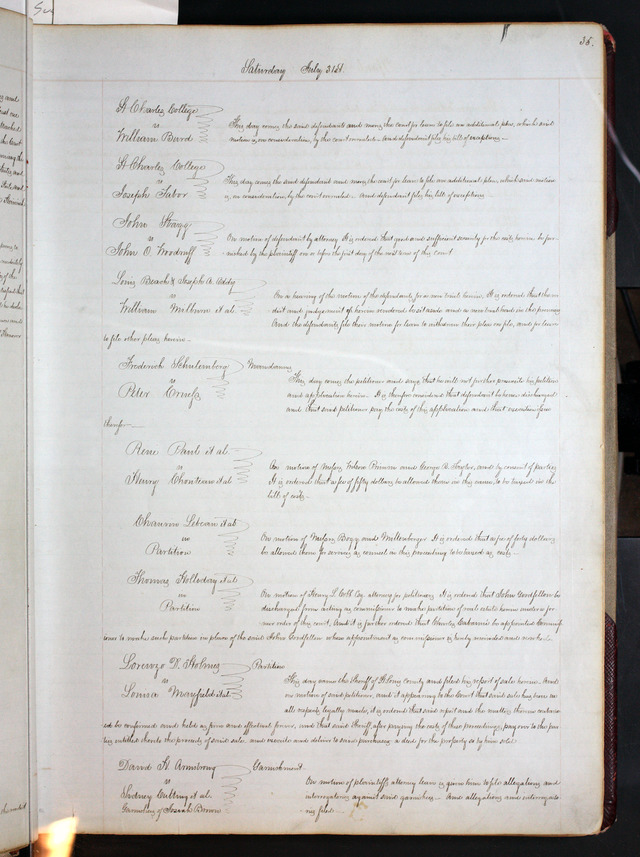 35.
Saturday July 31st.
St Charles College
vs
William Burd
This day comes the said defendants and moves the court for leave to file an additional plea, which said
motion is, on consideration, by the court overruled. And defendant files his bill of exceptions.
St Charles College
vs
Joseph Tabor
This day comes the said defendant and moves the court for leave to file an additional plea, which said motion
is, on consideration, by the court overruled. And defendant files his bill of exceptions
John Stagg
vs
John O. Woodruff
On motion of defendant by attorney It is ordered that good and sufficient security for the costs herein be fur-
nished by the plaintiff on or before the first day of the next term of this court
Louis Beach & Joseph A. Eddy
vs
William Milburn et al.
On a hearing of the motion of the defendants for a new trial herein, It is ordered that the ver-
dict and judgement if herein rendered be set aside and a new trial had in the premises
And the defendants file their motion for leave to withdraw their plea on file, and for leave
to file other pleas herein
Frederick Schulenberg
vs
Peter
Mandamus
This day comes the petitioner and says that he will not further prosecute his petition
and application herein. It is therefore considered that defendant be hence discharged
and that said petitioner pay the costs of this application and that execution issue
therefor
Rene Paul et al.
vs
Henry Chouteau et al
On motion of Wilson Primm and George R. Taylor, and by consent of parties
It is ordered that a fee of fifty dollars be allowed them in this cause, to be taxed in the
bill of costs.
Chauvin Lebeau et al
in
Partition
On motion of Bogy and It is ordered that a fee of forty dollars
be allowed them for services as counsel in this proceeding to be taxed as costs
Thomas Holliday et al.
in
Partition
On motion of Henry S. Cobb Esq attorney for petitioners It is ordered that John Goodfellow be
discharged from acting as commissioner to make partition of real estate herein under a for-
mer order of this court, And it is further ordered that Charles Cabanne be appointed Commis-
sioner to make such partition in place of the said John Goodfellow whose appointment as commissioner is hereby rescinded and revoked.
Lorenzo D. Holmes
vs
Louisa Mayfield et al.
Partition
This day came the Sheriff of St Louis County and filed his report of sale herein. And
on motion of said petitioner, and it appearing to the Court that said sale has been in
all respects legally made, it is ordered that said report and the matters therein contain-
ed be confirmed and held as firm and effectual forever, and that said Sheriff after paying the costs of these proceedings, pay over to the par-
ties entitled thereto the proceeds of said sale, and execute and deliver to said purchaser a deed for the property so by him sold
David H. Armstrong
vs
Sydney et al.
Garnishee of Josiah Brown
Garnishment.
On motion of plaintiffs attorney leave is given him to file allegations and
interrogatories against said garnishees. And allegations and interrogato-
ries filed.